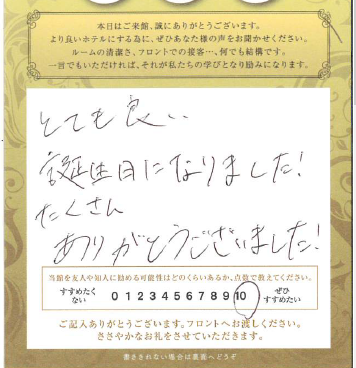 本日はご来館、誠にありがとうございます。
より良いホテルにする為に、ぜひあなた様の声をお聞かせください。
ルームの清潔さ、フロントでの接客…、何でも結構です。
一言でもいただければ、それが私たちの学びとなり励みになります。
とても良い
誕生日になりました!
たくさん
ありがとうございました!
当館を友人や知人に勧める可能性はどのくらいあるか、点数で教えてください。
すすめたくない 0 1 2 3 4 5 6 7 8 9 10 ぜひすすめたい
ご記入ありがとうございます。フロントへお渡しください。
ささやかなお礼をさせていただきます。
書ききれない場合は裏面へどうぞ